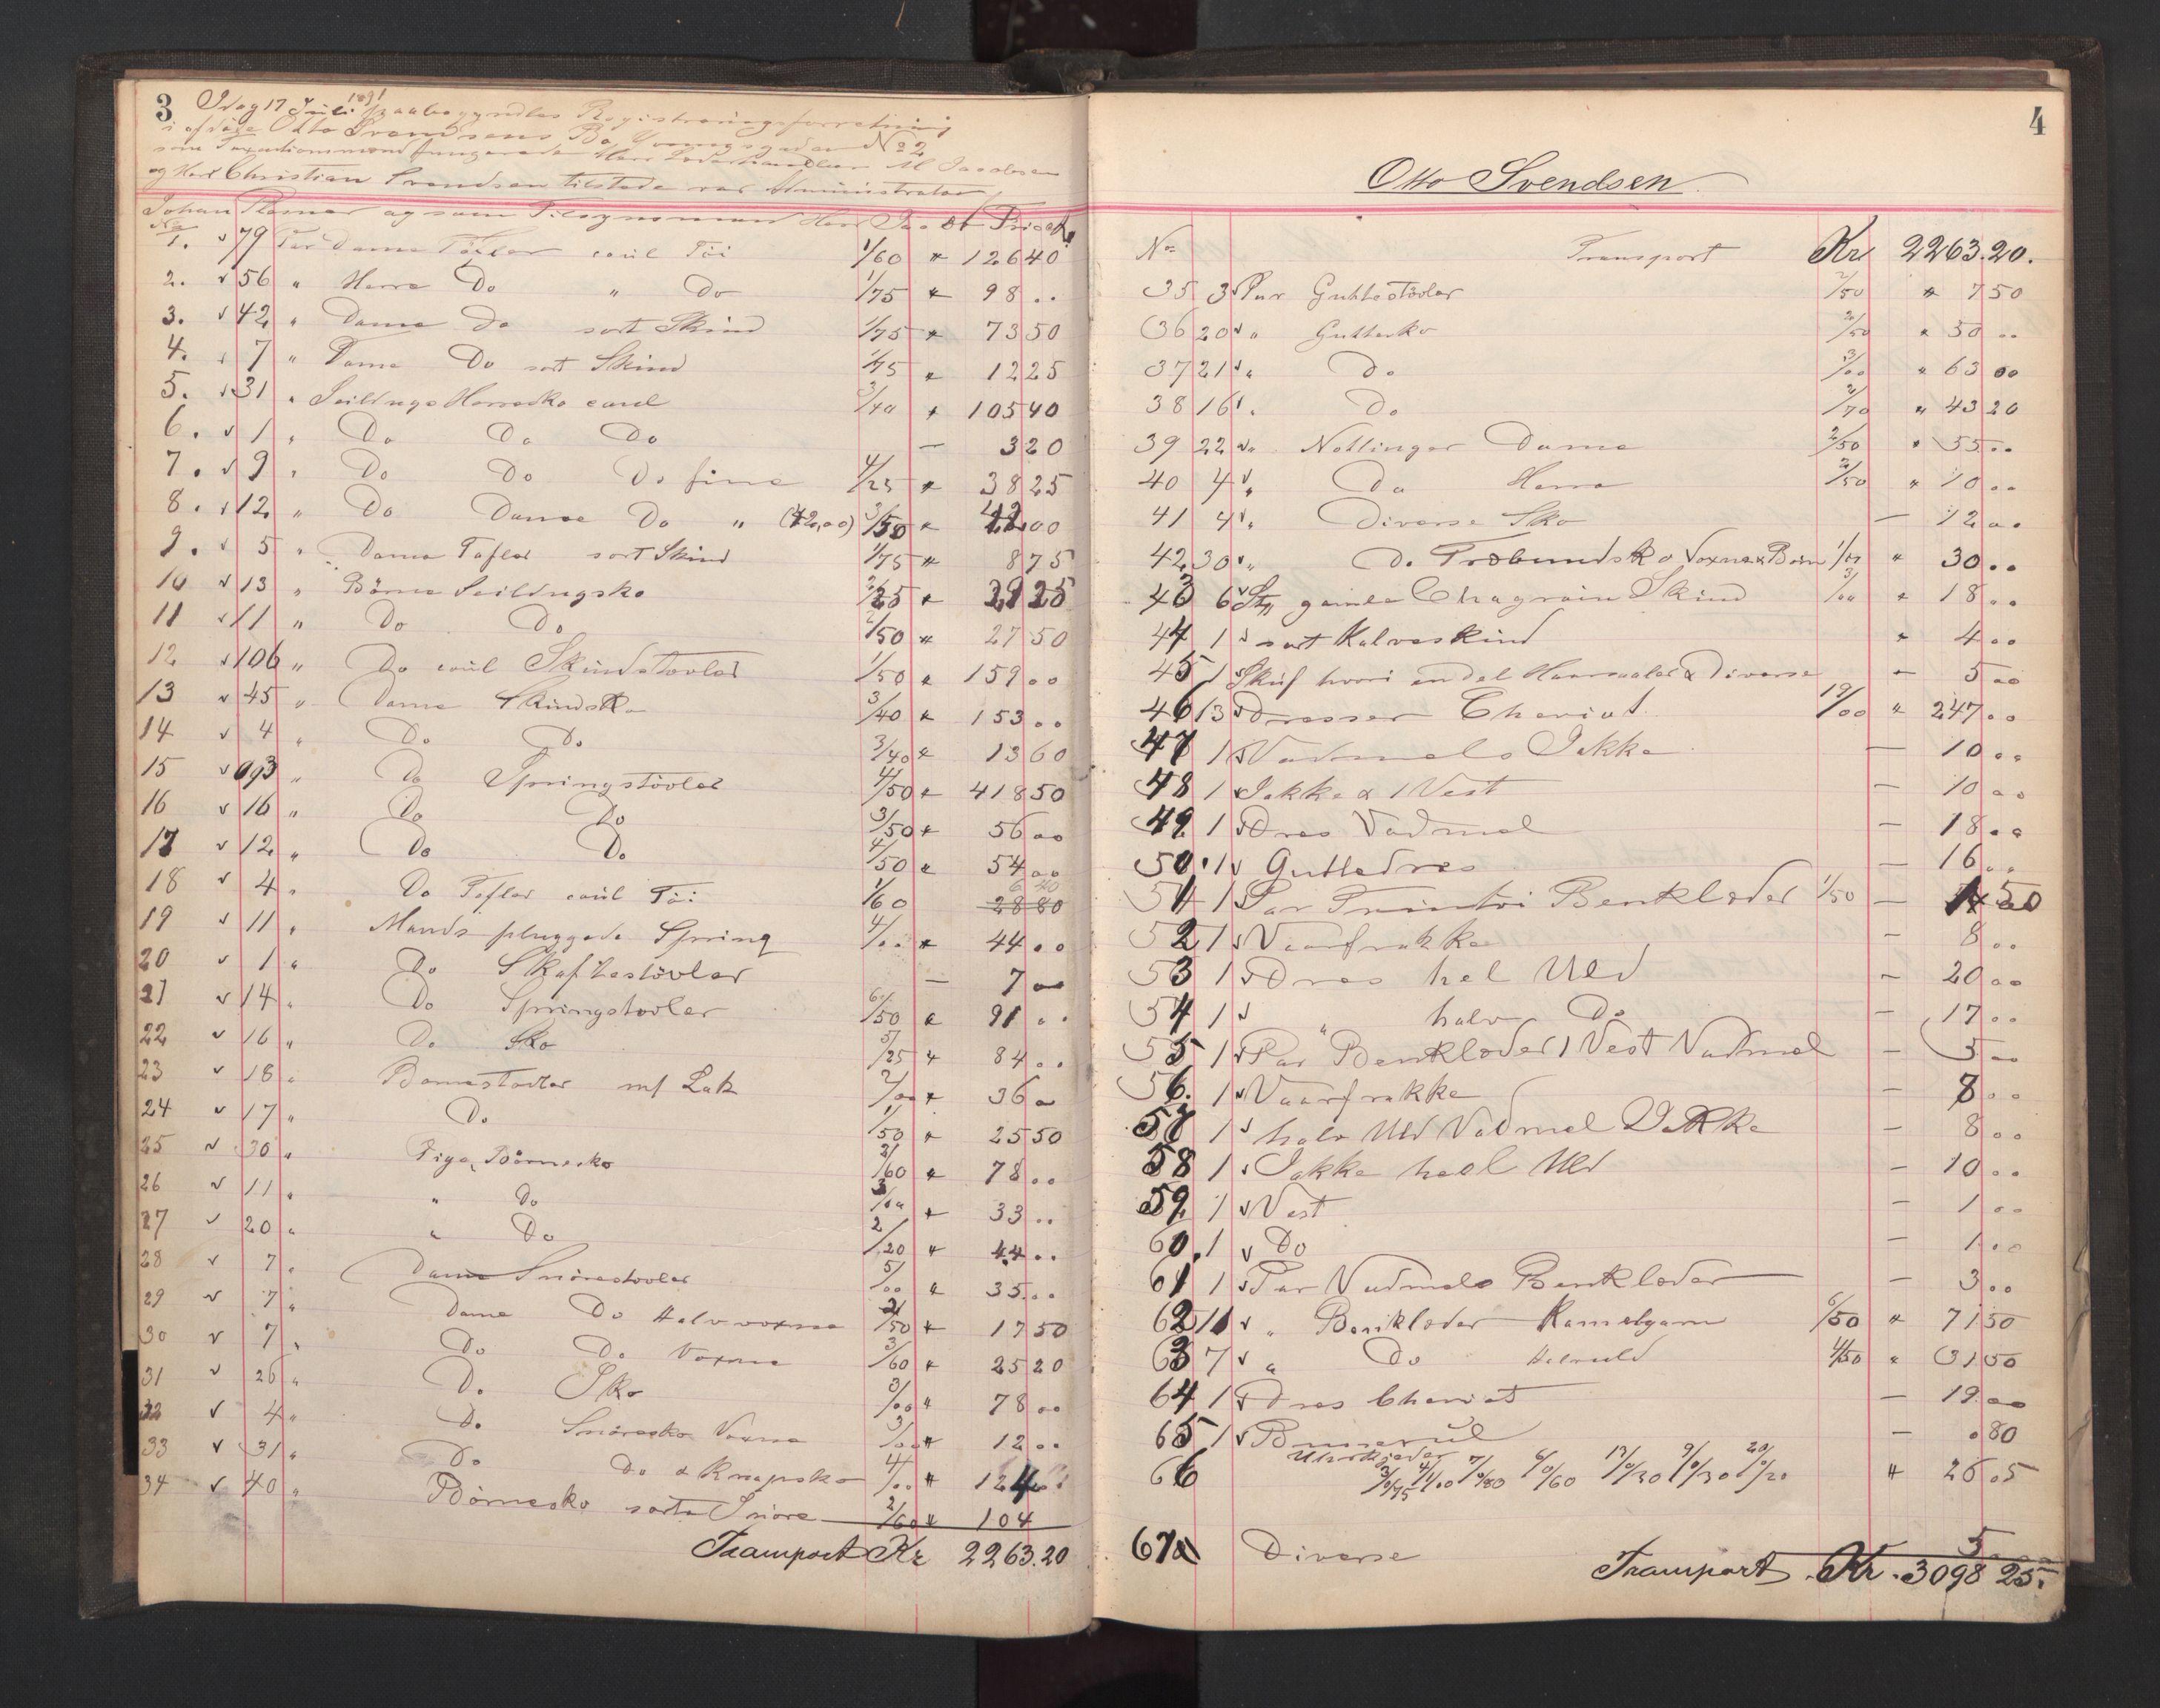 3
Idag 17 Juli 1891 paabegyndtes Registreringsforretning
i afdöde Otto Svendsens Bo, No 2
som Taxationsmænd fungerede Herr Læderhandler M Jacobsen
og Herr Christian Svendsen tilstede var Administrator
Johan og som Tilsynsmand Herr
1. 79 Par Dame Töfler coul Töi 1/60 " 126 40
2. 56 " Herre Do " Do 1/75 " 98 ..
3. 42 " Dame Do sort Skind 1/75 " 73 50
4. 7 " Dame Do sort Skind 1/75 " 12 25
5. 31 " Seildugs Herresko coul 3/40 " 105 40
6. 1 " Do Do Do — 3 20
7. 9 " Do Do Do fine 4/25 " 38 25
8. 12 " Do Dame Do " (42,00) 3/50 " 42 00
9. 5 " Dame Tøfler sort Skind 1/75 " 8 75
10 13 " Börne Seildugsko 2/25 " 29 25
11 11 " Do Do 2/50 " 27 50
12 106 " Do coul Skindstovler 1/50 " 159 00
13 45 " Dame Skindsko 3/40 " 153 00
14 4 " Do Do 3/40 " 13 60
15 93 " Do Springstövler 4/50 " 418 50
16 16 " Do Do 3/50 " 56 00
17 12 " Do Do 4/50 " 54 00
6 40
18 4 " Do Tøfler coul Töi 1/60 28 80
19 11 " Mands pluggede Spring 4/.. " 44 00
20 1 " Do Skaftestövler — 7 00
21 14 " Do Springstovler 6/50 " 91 ..
22 16 " Do Sko 5/25 " 84 ..
23 18 " Bornestovler m/ Lak 2/00 " 36 00
24 17 " Do 1/50 " 25 50
25 30 " Pige, Börnesko 2/60 " 78 ..
26 11 " " Do 3/00 " 33 ..
27 20 " " Do 2/20 " 44 ..
28 7 " Dame Snörestovler 5/00 " 35 ..
29 7 " Dame Do Halvvoxne 2/50 " 17 50
30 7 " Do Do Voxne 3/60 " 25 20
31 26 " Do Sko 3/00 " 78 00
32 4 " Do Snöresko Voxne 3/00 " 12 ..
33 31 " Do Do & Knapsko 4/00 " 124 ..
34 40 " Börnesko sorte Snöre 2/60 " 104
Transport Kr 2263.20
4
Otto Svendsen
No Transport Kr 2263.20.
35 3 Par Guttestövler 2/50 " 7 50
36 20 " Guttesko 2/50 " 50 ..
37 21 " Do 3/00 " 63 00
38 16 " Do 2/70 " 43 20
39 22 " Nottinger Dame 2/50 " 55 ..
40 4 " Do Herre 2/50 " 10 ..
41 4 " Diverse Sko — 12 ..
42 30 " Do Træbundsko Voxne & Börn 1/00 " 30 ..
43 6 Stk gamle Chagrain Skind 3/00 " 18 ..
44 1 sort Kalveskind " 4 ..
45 1 Skuf hvori en del Haarsaaler & Diverse — 5 00
46 13 Dresser Cheviot 19/00 " 247 ..
47 1 Vadmels Jakke — 10 ..
48 1 Jakke & 1 Vest — 10 ..
49. 1 Dres Vadmel — 18 ..
50. 1 Guttedres — 16 ..
51 1 Par Benklæder 1/50 — 1 50
52 1 Vaarfrakke — 8 ..
53 1 Dres hel Uld — 20 ..
54 1 " halv Do — 17 ..
55 1 Par Benklæder 1 Vest Vadmel — 5 ..
56. 1 Vaarfrakke — 8 ..
57 1 halv Uld Vadmel Jakke — 8 ..
58 1 Jakke heel Uld — 10 ..
59. 1 Vest — 1 ..
60. 1 Do — 1 ..
61 1 Par Vadmels Benklæder — 3 ..
62 11 " Benklæder Kamelgarn 6/50 " 71 50
63 7 " Do Halvuld 4/50 " 31 50
64 1 Dres Cheviot — 19 00
65 1 — . 80
Uhrkjeder
66 3/0/95 4/1/00 7/0/80 6/0/60 13/0/30 9/0/30 20/0/20 " 26 05
67 Diverse 5
Transport Kr. 3098 25.